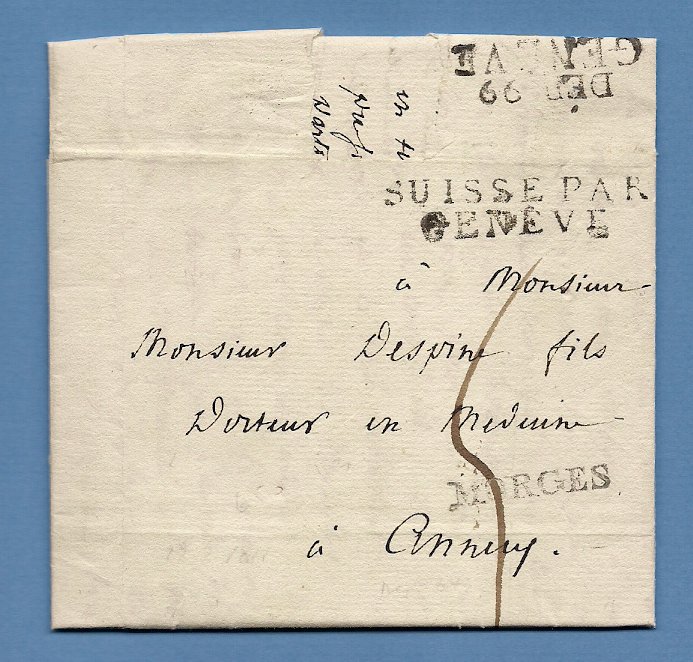 DEB. 99
GENEVE
SUISSE PAR
GENÈVE
à Monsieur
Monsieur Despine fils
Docteur en Medecine
MORGES
à Annecy.